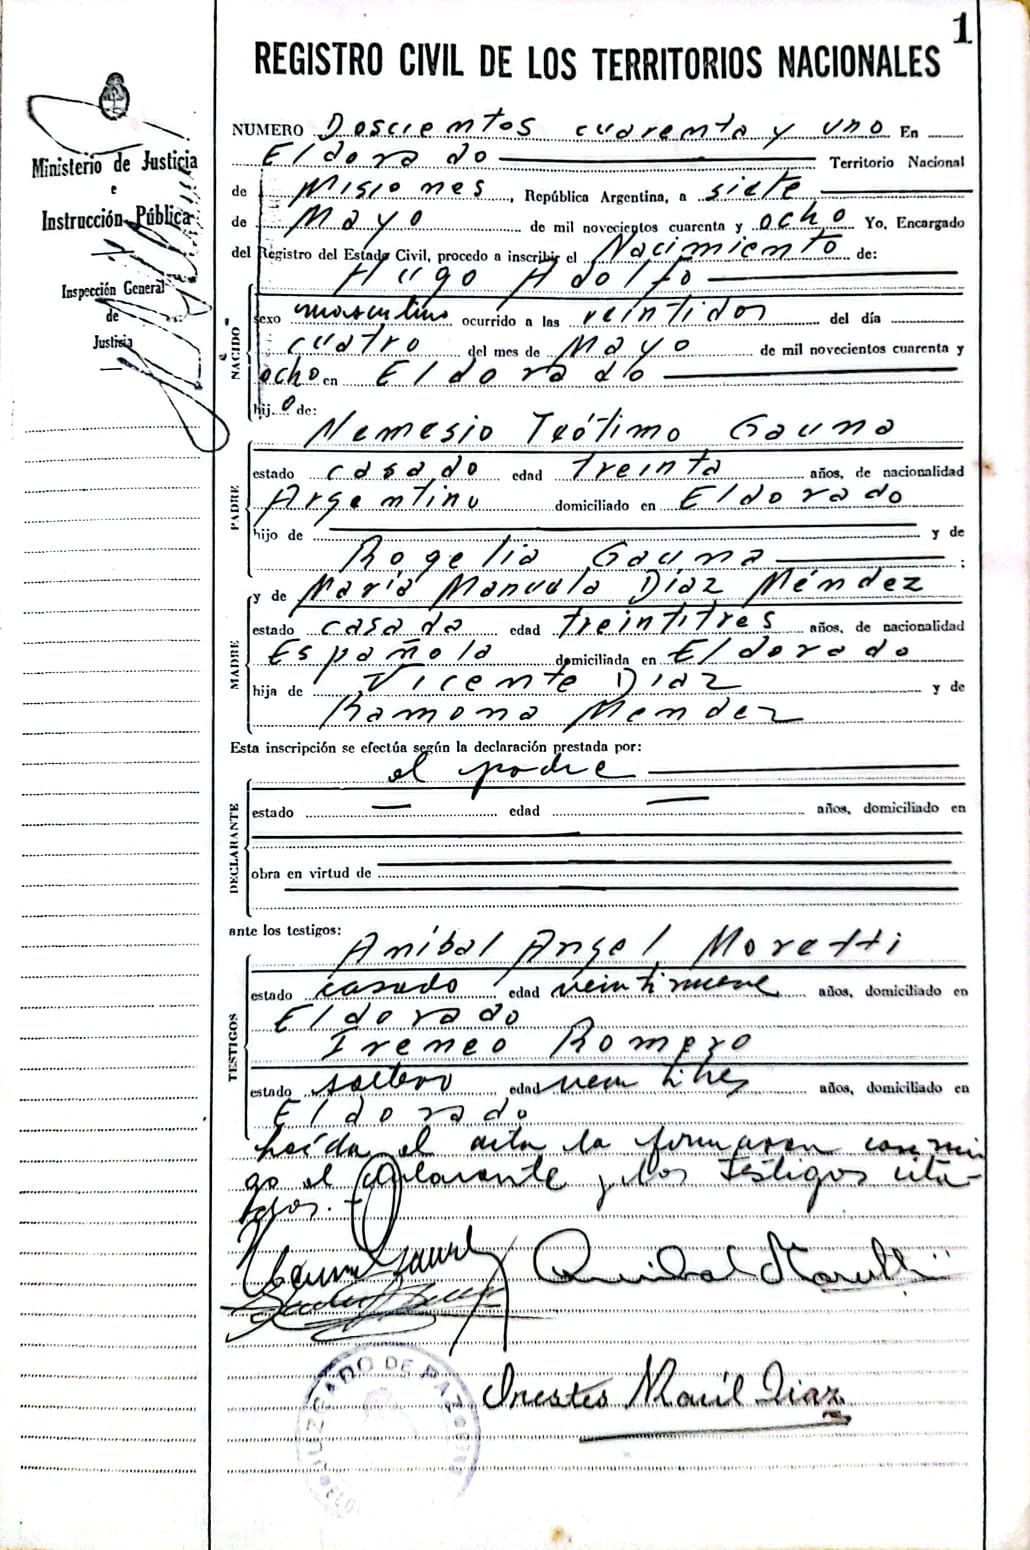 1
REGISTRO CIVIL DE LOS TERRITORIOS NACIONALES
Ministerio de Justicia
e
Instrucción Pública
Inspección General
de
Justicia
NUMERO Doscientos cuarenta y uno En
Eldorado Territorio Nacional
de Misiones, República Argentina, a siete
de Mayo de mil novecientos cuarenta y ocho Yo, Encargado
del Registro del Estado Civil, procedo a inscribir el Nacimiento de:
NACIDO
Hugo Adolfo
sexo masculino ocurrido a las veintidos del día
cuatro del mes de Mayo de mil novecientos cuarenta y
ocho en Eldorado
hijo de:
PADRE
Nemesio Teótimo Gauna
estado casado edad treinta años, de nacionalidad
Argentino domiciliado en Eldorado
hijo de y de
Rogelia Gauna ;
MADRE
y de María Manuela Díaz Méndez
estado casada edad treintitres años, de nacionalidad
Española domiciliada en Eldorado
hija de Vicente Diaz y de
Ramona Mendez
Esta inscripción se efectúa según la declaración prestada por:
DECLARANTE
el padre
estado edad años, domiciliado en
obra en virtud de
ante los testigos:
TESTIGOS
Aníbal Angel Moretti
estado casado edad veintinueve años, domiciliado en
Eldorado
Ireneo Romero
estado soltero edad veintitres años, domiciliado en
Eldorado
Leída el acta la firmaron conmi
go el declarante y los testigos cita-
dos. -
Anibal Moretti
JUZGADO DE PAZ
Orestes Raúl Diaz